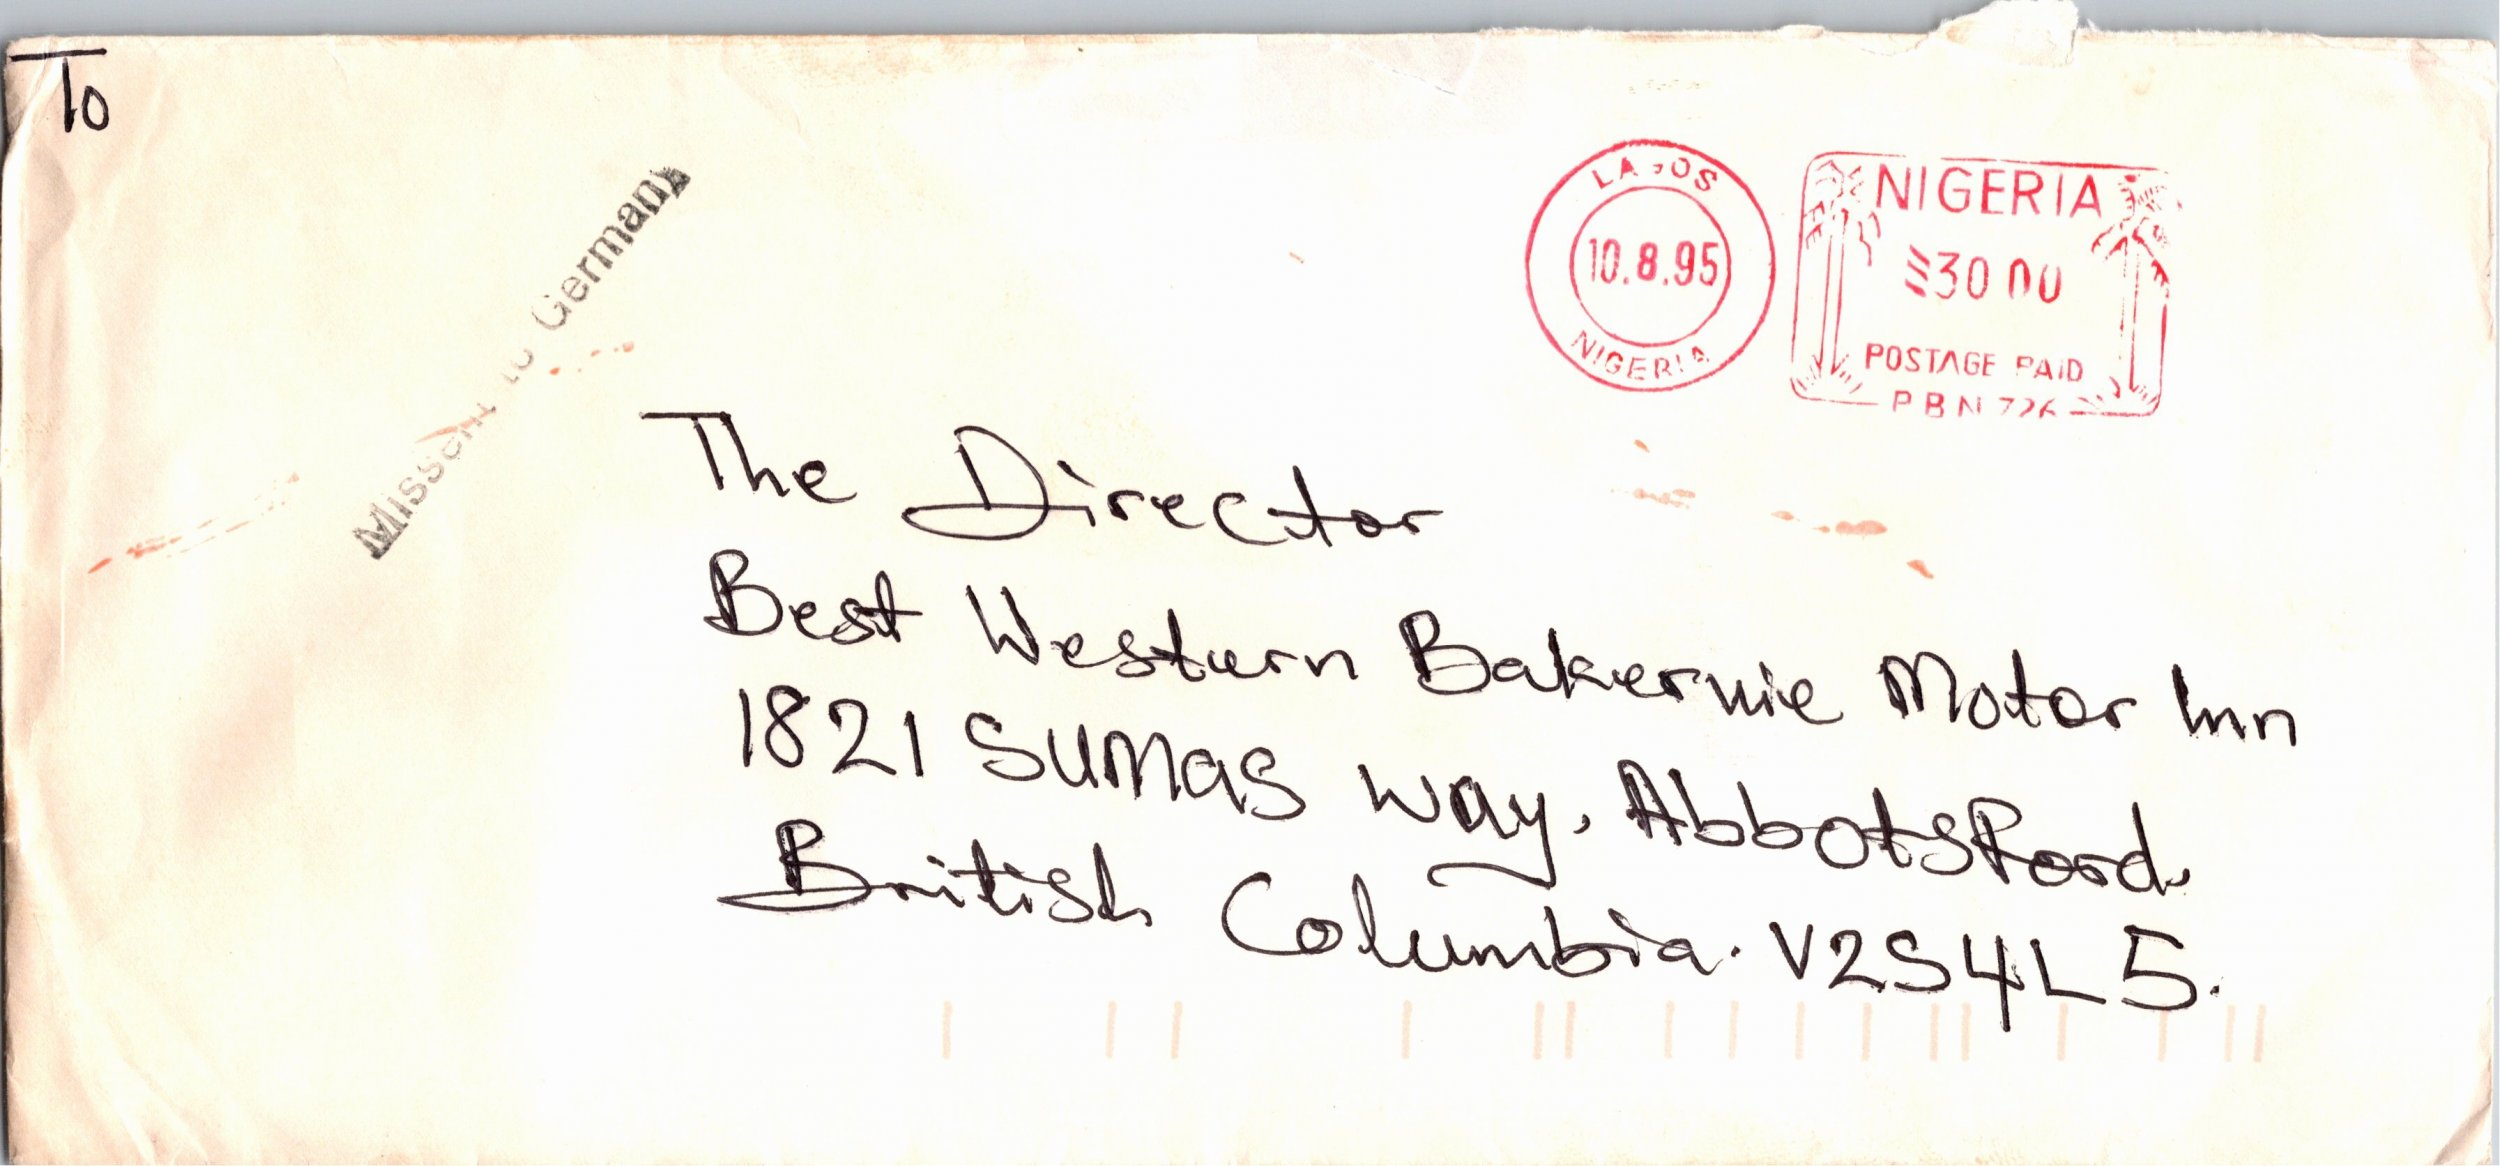 To
Missent to Germany
LAGOS
10.8.95
NIGERIA
NIGERIA
30 00
POSTAGE PAID
PBN 726
The Director
Best Western Bakerview Motor Inn
1821 SUMAS Way, Abbotsford.
British Columbia. V2S4L5.